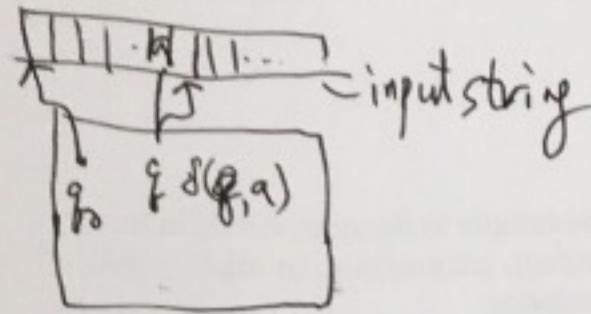 a ...
input string
q₀ q δ(q,a)